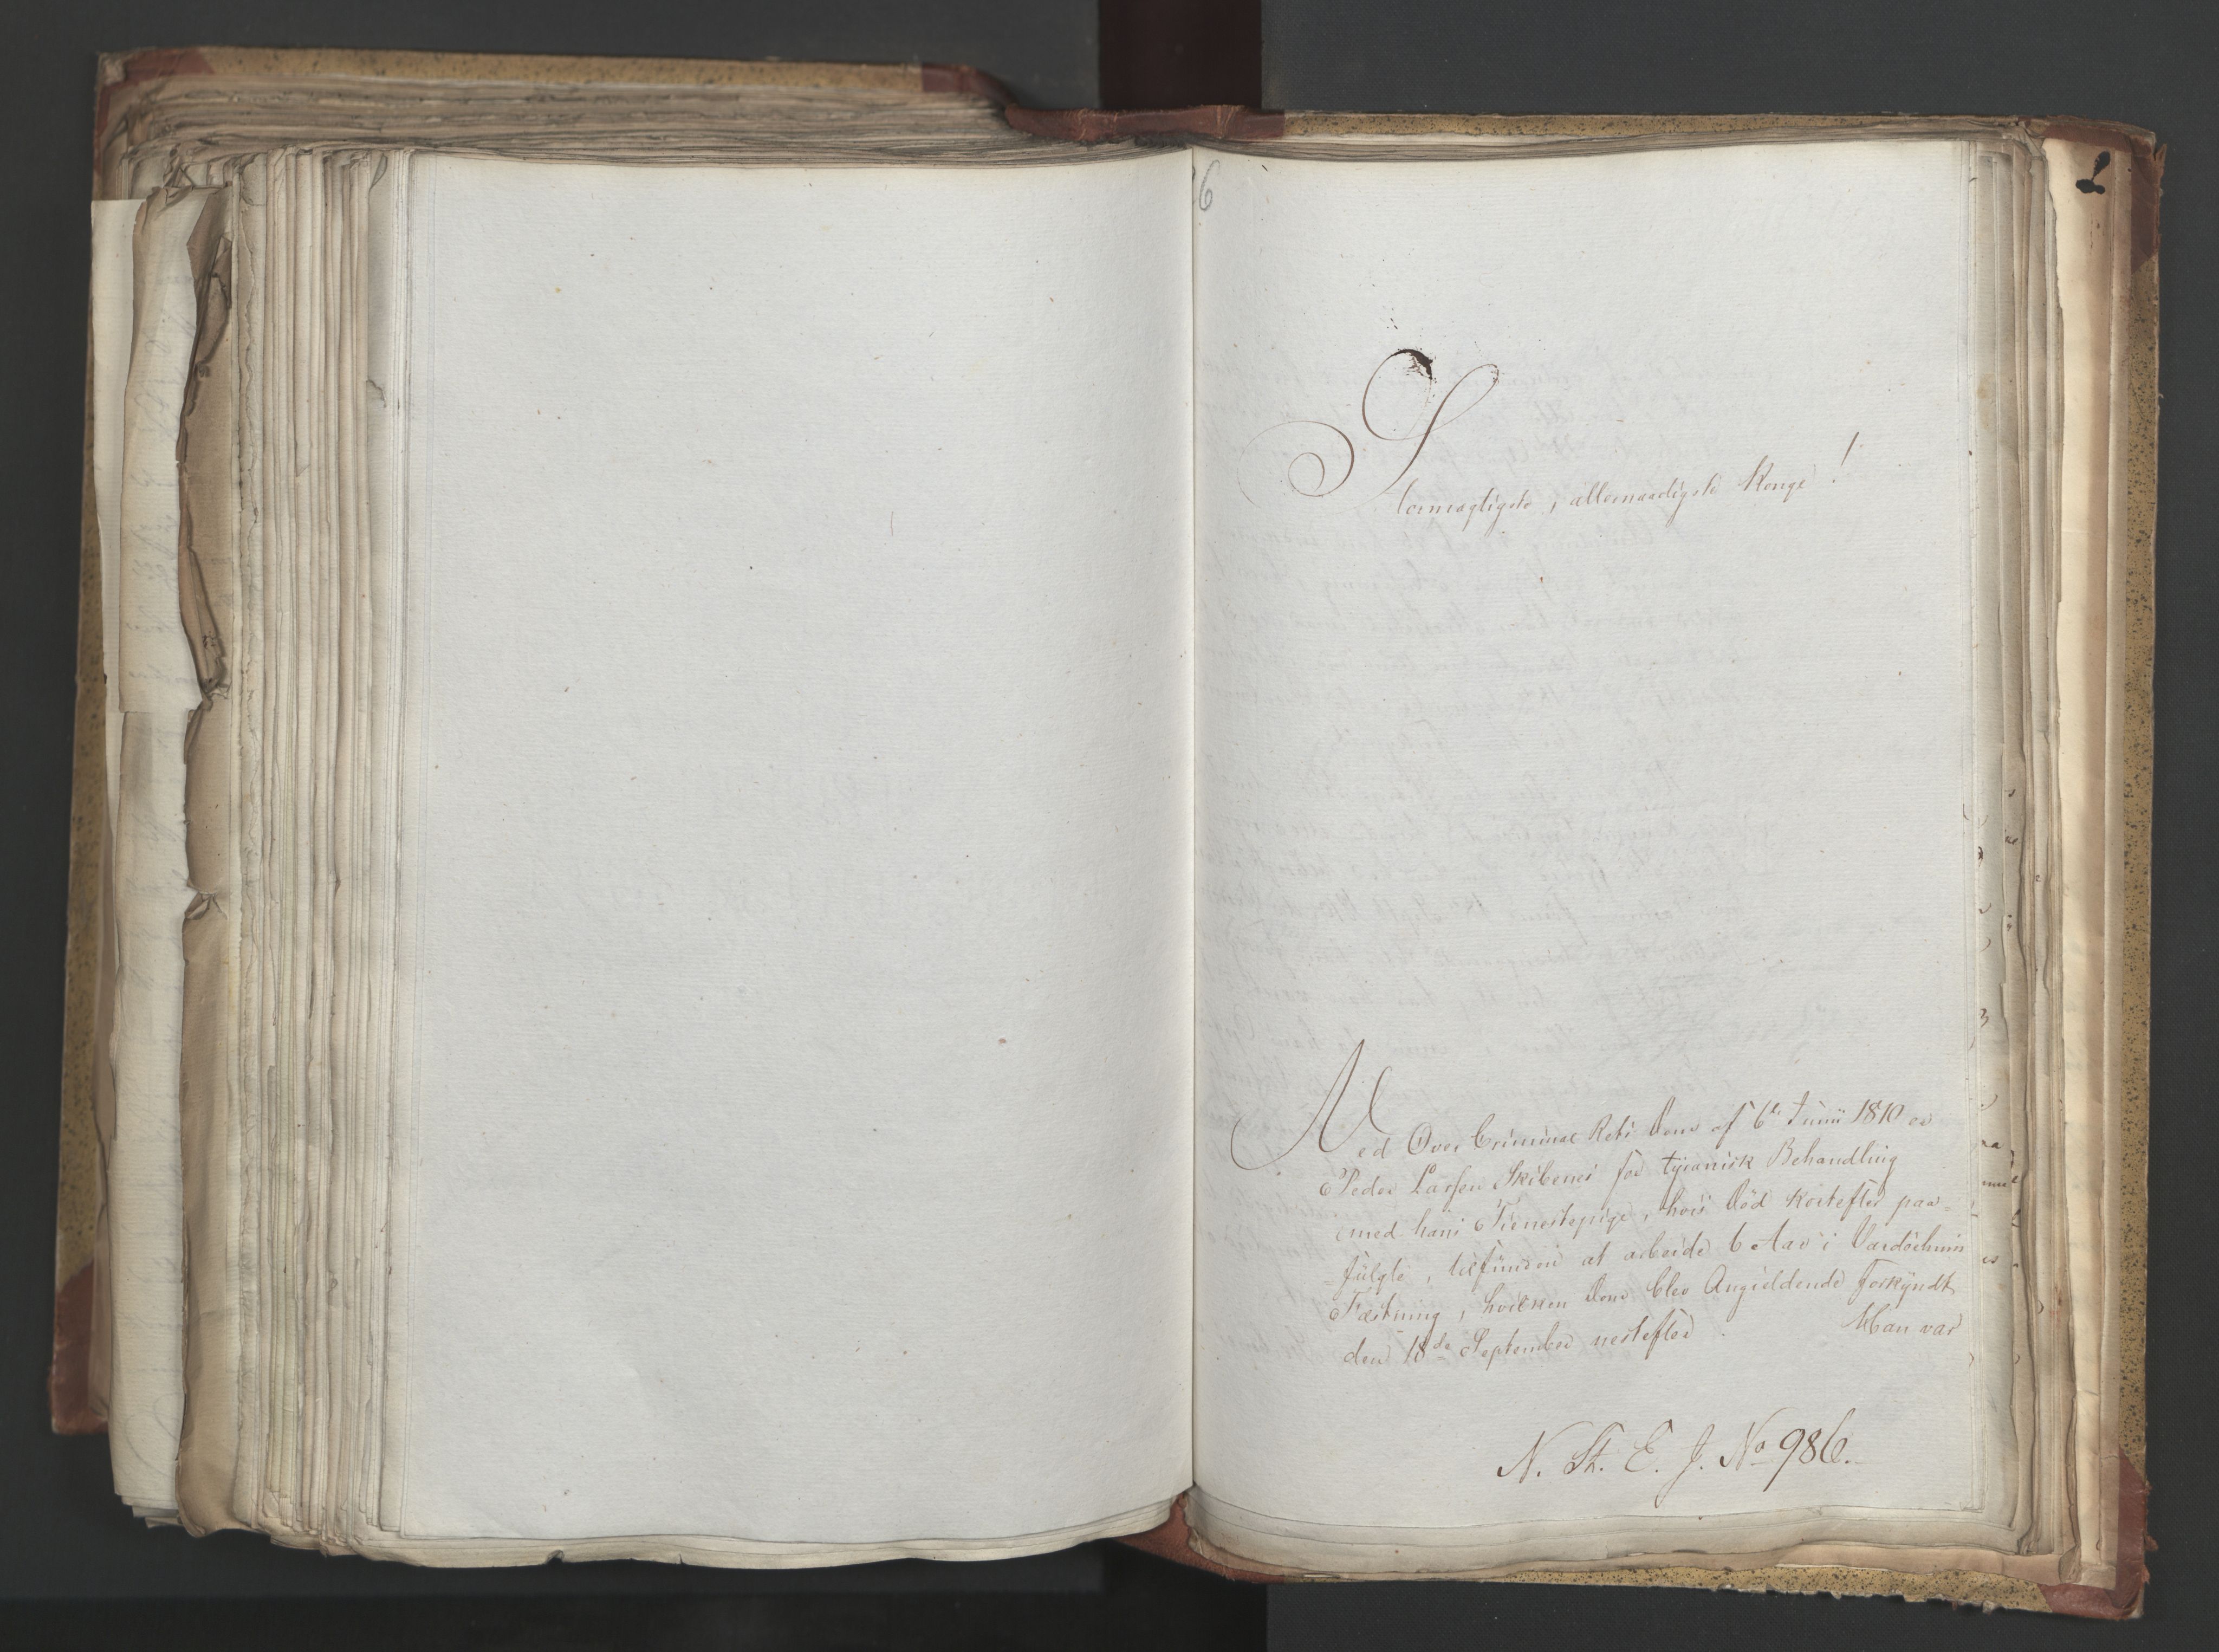 6
Stormægtigste, allernaadigste Konge!
Med Over Criminal Rets Dom af 6te Junii 1810 er
Peder Larsen Skibenes for tyranisk Behandling
med hans Tienestepige, hvis Död kortefter paa-
-fulgte, tilfunden at arbeide 6 Aar i Vardöehuus
Fæstning, hvilken Dom blev Angieldende forkyndt
den 18de September nestefter. Man var
N. St. E. J. No 986.